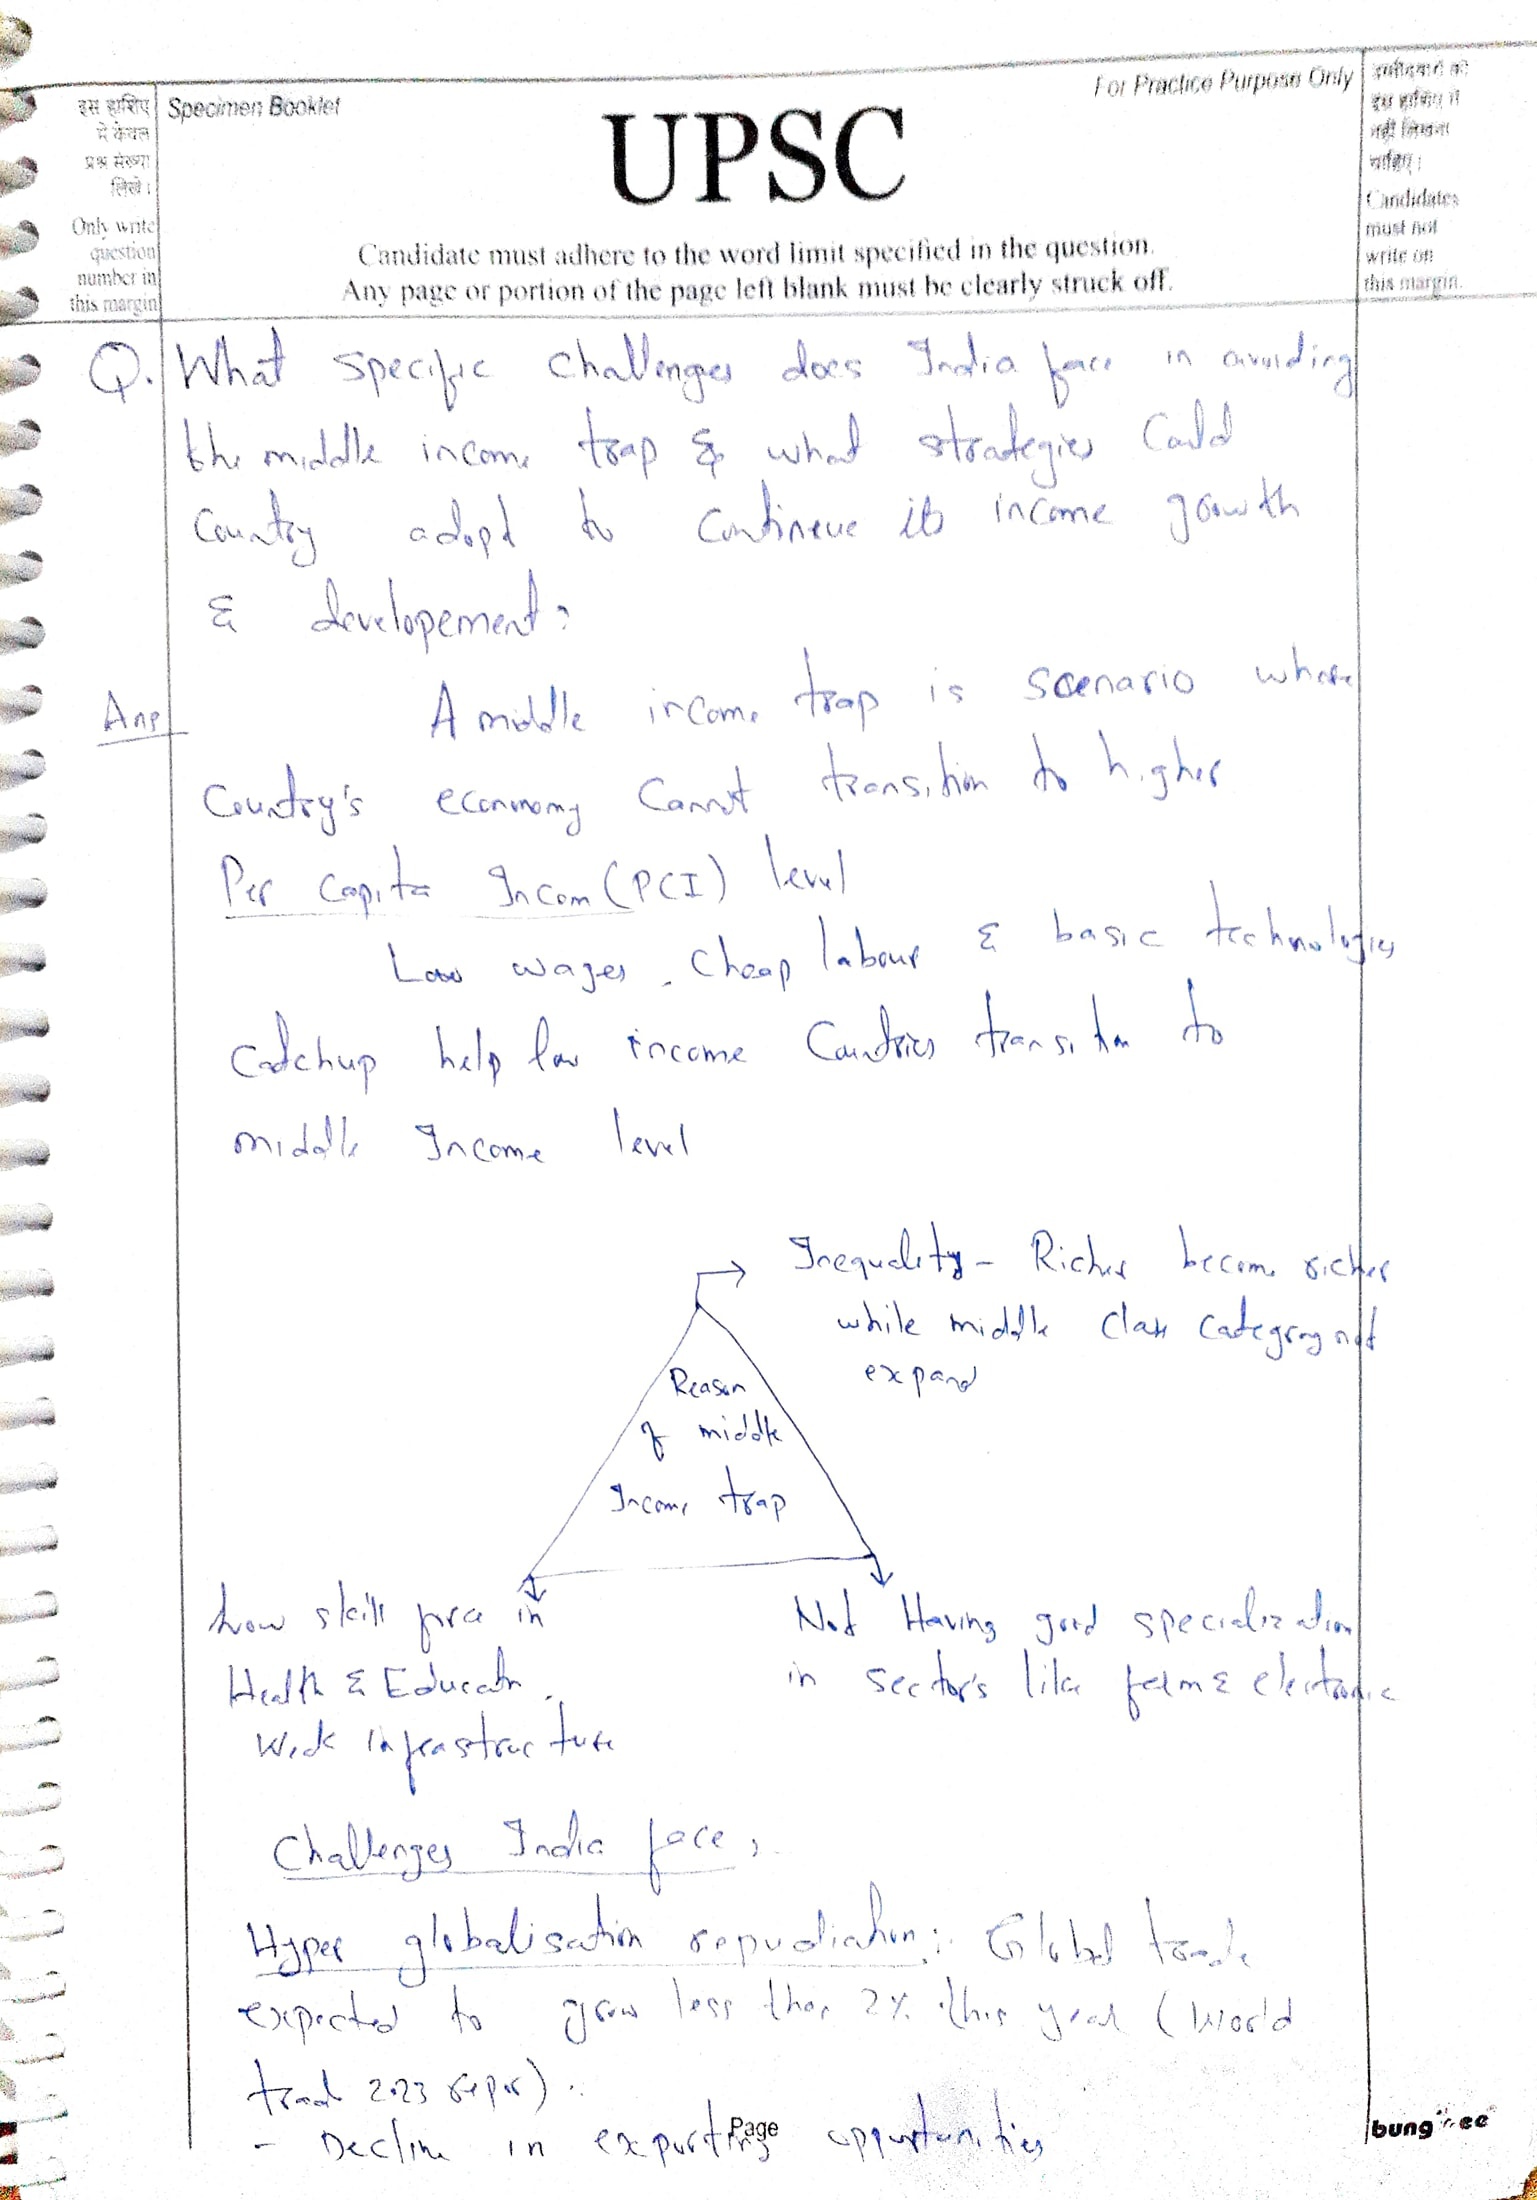 इस हाशिए
में केवल
प्रश्न संख्या
लिखें।
Only write
question
number in
this margin
Specimen Booklet
For Practice Purpose Only
UPSC
Candidate must adhere to the word limit specified in the question.
Any page or portion of the page left blank must be clearly struck off.
उम्मीदवारों को
इस हाशिए में
नहीं लिखना
चाहिए।
Candidates
must not
write on
this margin.
Q. What specific challenges does India face in avoiding
the middle income trap & what strategies could
Country adopt to contineue its income growth
& developement?
Ans
A middle income trap is scenario where
Country's economy Cannot transition to higher
Per Capita Incom (PCI) level
Low wages, Cheap labour & basic technologies
Catchup help low income Countries transition to
middle Income level
Inequality - Richer become richer
while middle class category not
expand
Reason
of middle
Income trap
Low skill force in
Health & Education.
Weak infrastructure
Not Having good specialization
in sector's like & electronic
Challenges India face,
Hyper globalisation repudiation: Global trade
expected to grow less than 2% this year (World
trade 2023 repor)
- Decline in exporting opportunities
Page
bung ee